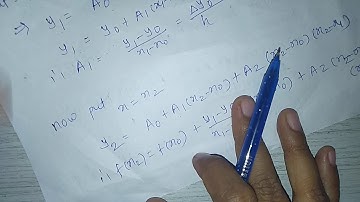 ⇒ y₁ = A₀
y₁ = y₀ + A₁(x₁
∴ A₁ = y₁-y₀ / x₁-x₀ = Δy₀ / h
now put x = x₂
y₂ = A₀ + A₁(x₂-x₀) + A₂(x₂-x₀)(x₂-x₁)
∴ f(x₂) = f(x₀) + y₁-y₀ / x₁- x₀) + A₂(x₂-